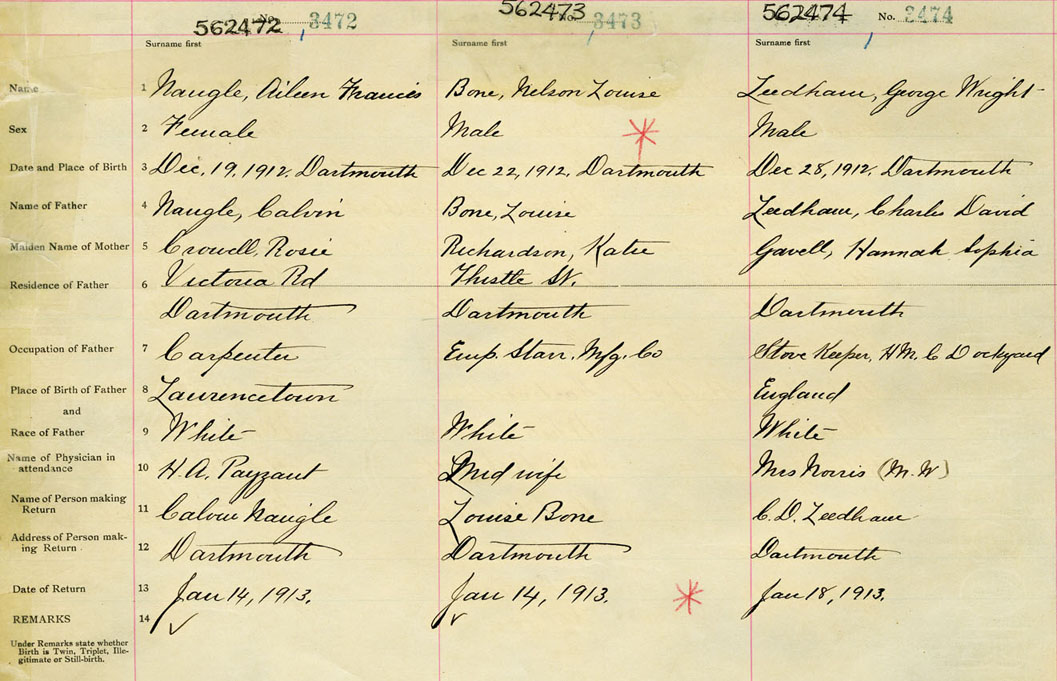 562472 No. 3472 562473 No. 3473 562474 No. 3474
Surname first Surname first Surname first
Name 1 Naugle, Aileen Francis Bone, Nelson Louise Leedham, George Wright
Sex 2 Female Male Male
Date and Place of Birth 3 Dec. 19, 1912. Dartmouth Dec 22, 1912. Dartmouth Dec 28, 1912. Dartmouth
Name of Father 4 Naugle, Calvin Bone, Louise Leedham, Charles David
Maiden Name of Mother 5 Crowell, Rosie Richardson, Katie Gavell, Hannah Sophia
Residence of Father 6 Victoria Rd Thistle St.
Dartmouth Dartmouth Dartmouth
Occupation of Father 7 Carpenter Emp. Starr. Mfg. Co Store Keeper, H.M. C Dockyard
Place of Birth of Father 8 Lawrencetown England
and
Race of Father 9 White White White
Name of Physician in
attendance 10 H. A. Payzant Midwife Mrs Norris (M. W)
Name of Person making
Return 11 Calvin Naugle Louise Bone C. D. Leedham
Address of Person mak-
ing Return 12 Dartmouth Dartmouth Dartmouth
Date of Return 13 Jan 14, 1913. Jan 14, 1913. Jan 18, 1913.
REMARKS 14
Under Remarks state whether
Birth is Twin, Triplet, Ille-
gitimate or Still-birth.